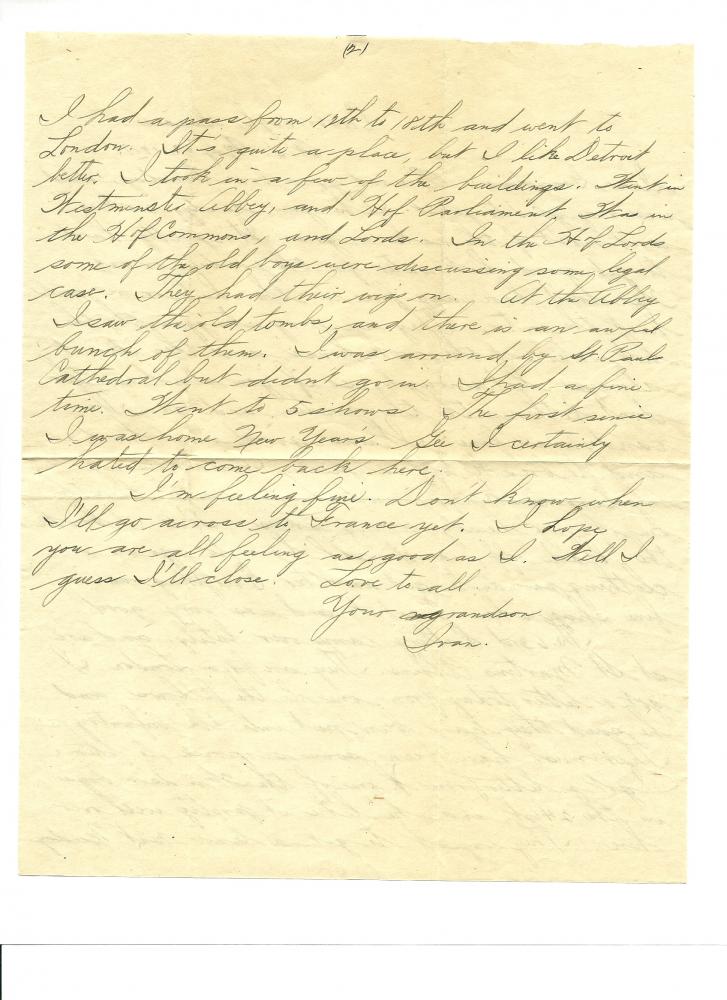 (2)
I had a pass from 12th to 18th and went to
London. It's quite a place, but I like Detroit
better. I took in a few of the buildings. Went in
Westminster Abbey, and H of Parliament, Was in
the H of Commons, and Lords. In the H of Lords
some of the old boys were discussing some legal
case. They had their wigs on. At the Abbey
I saw the old tombs, and there is an awful
bunch of them. I was around by St. Pauls
Cathedral but didnt go in. I had a fine
time. Went to 5 shows. The first since
I was home New Years. Gee I certainly
hated to come back here.
I'm feeling fine. Don't know when
I'll go across to France yet. I hope
you are all feeling as good as I. Well I
guess I'll close. Love to all.
Your grandson
Ivan.